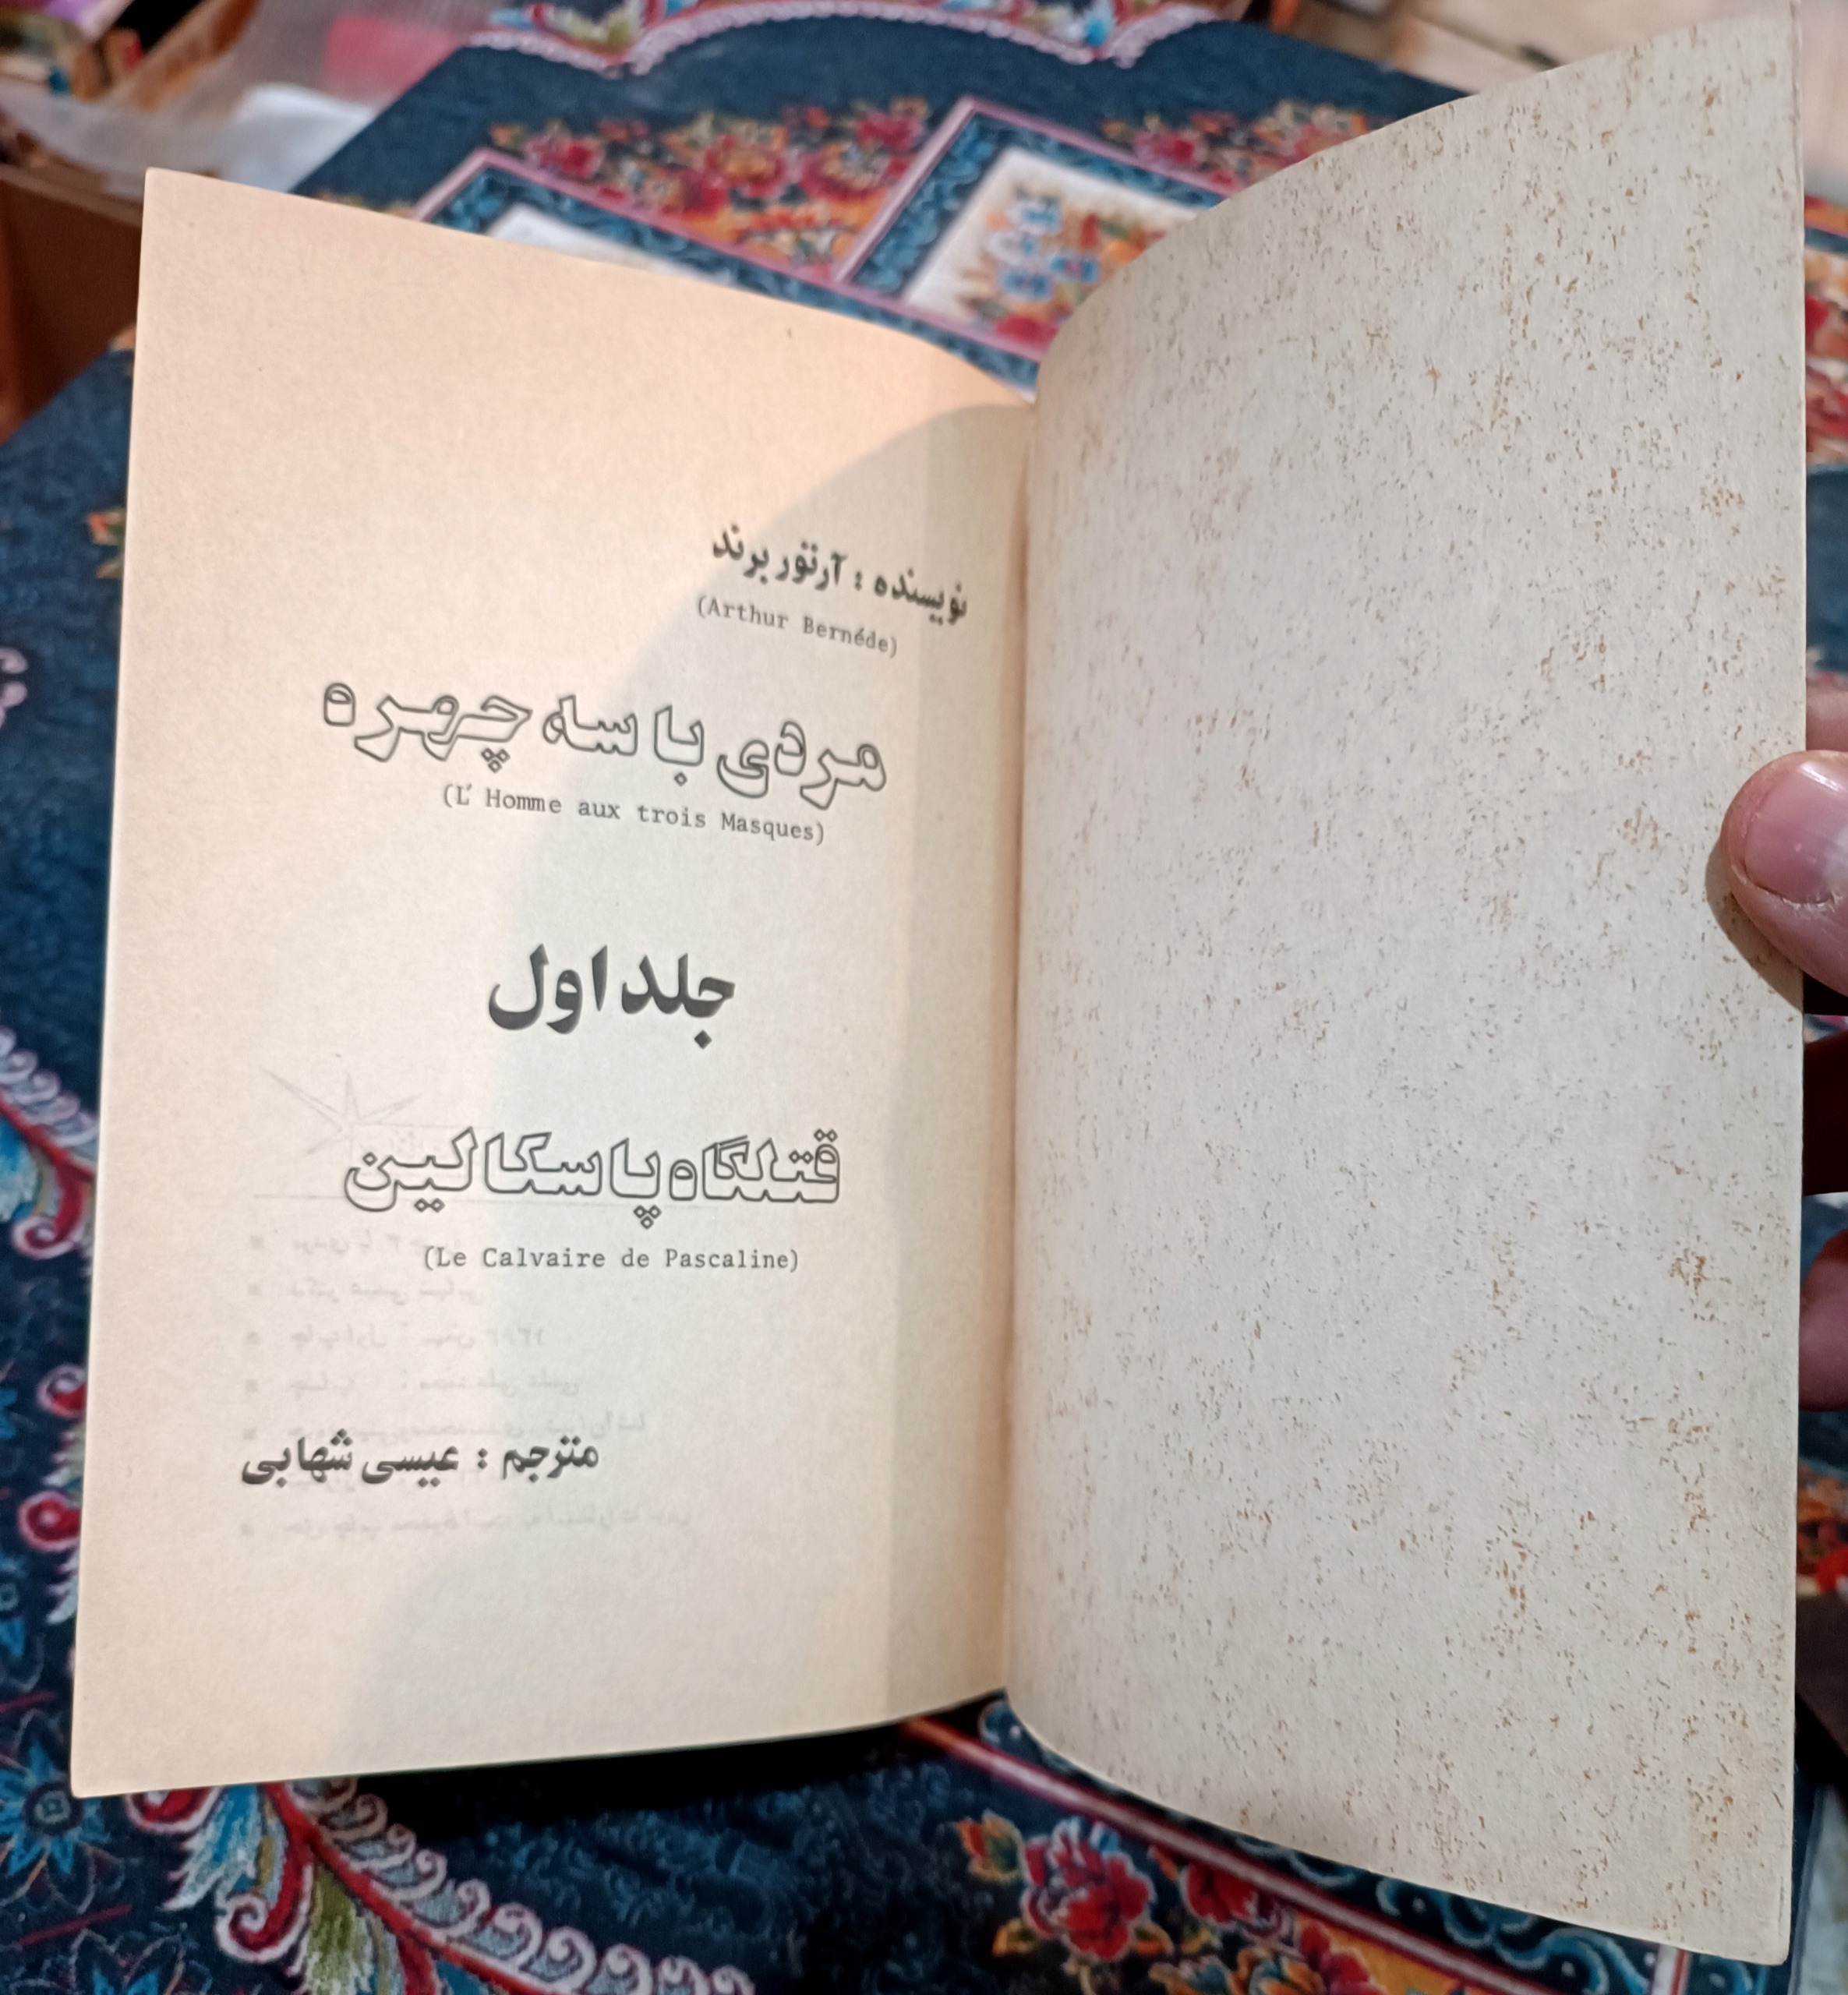 نویسنده : آرتور برند
(Arthur Bernéde)
مردی با سه چهره
(L' Homme aux trois Masques)
جلد اول
قتلگاه پاسکالین
(Le Calvaire de Pascaline)
مترجم : عیسی شهابی